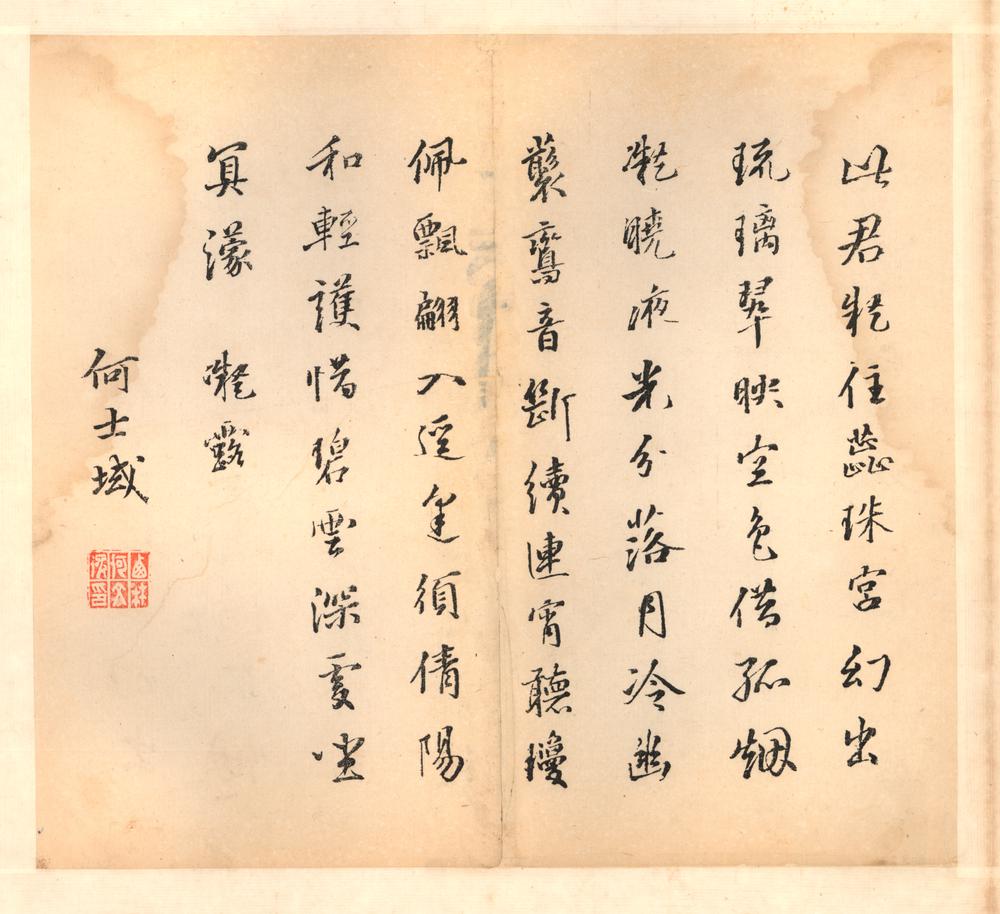 此君疑住蕊珠宮幻出
琉璃翠映空色借孤烟
凝曉液光分落月冷幽
藂鸞音斷續連宵聽瓊
佩飄翩入逕逢須倩陽
和輕護惜碧雲深處坐
冥濛 凝露
何士域